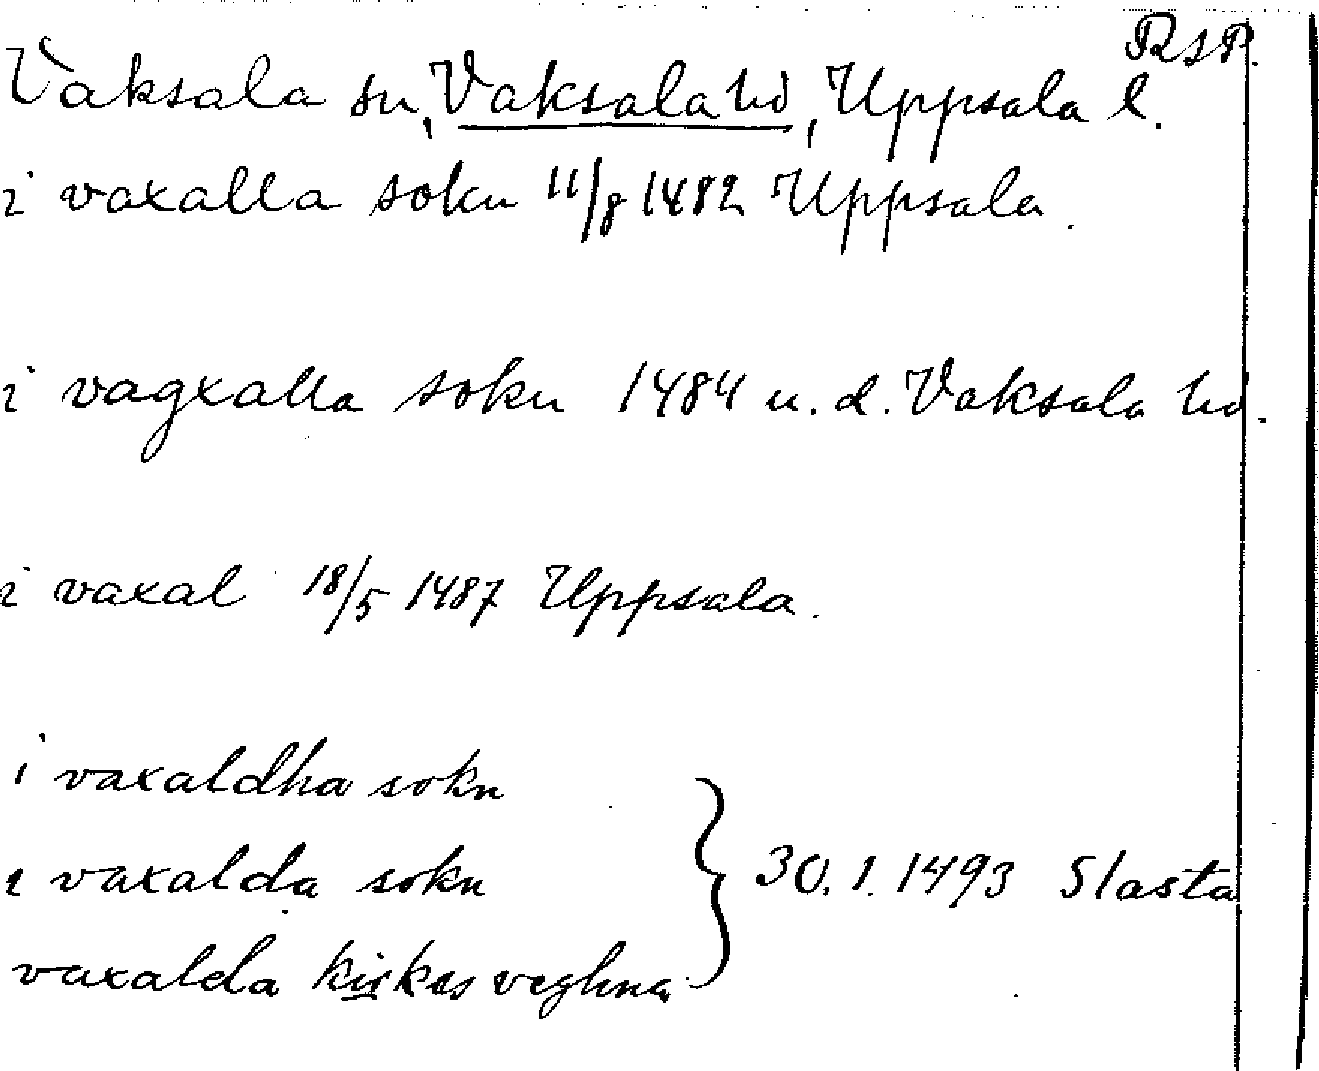 RSP.
Vaksala sn, Vaksala hd, Uppsala l.
i vaxalla sokn 11/8 1482 Uppsala.
i vagxalla sokn 1484 u. d. Vaksala hd.
i vaxal 18/5 1487 Uppsala.
i vaxaldha sokn
i vaxalda sokn } 30.1.1493 Slasta
vaxalda kirkes veghna